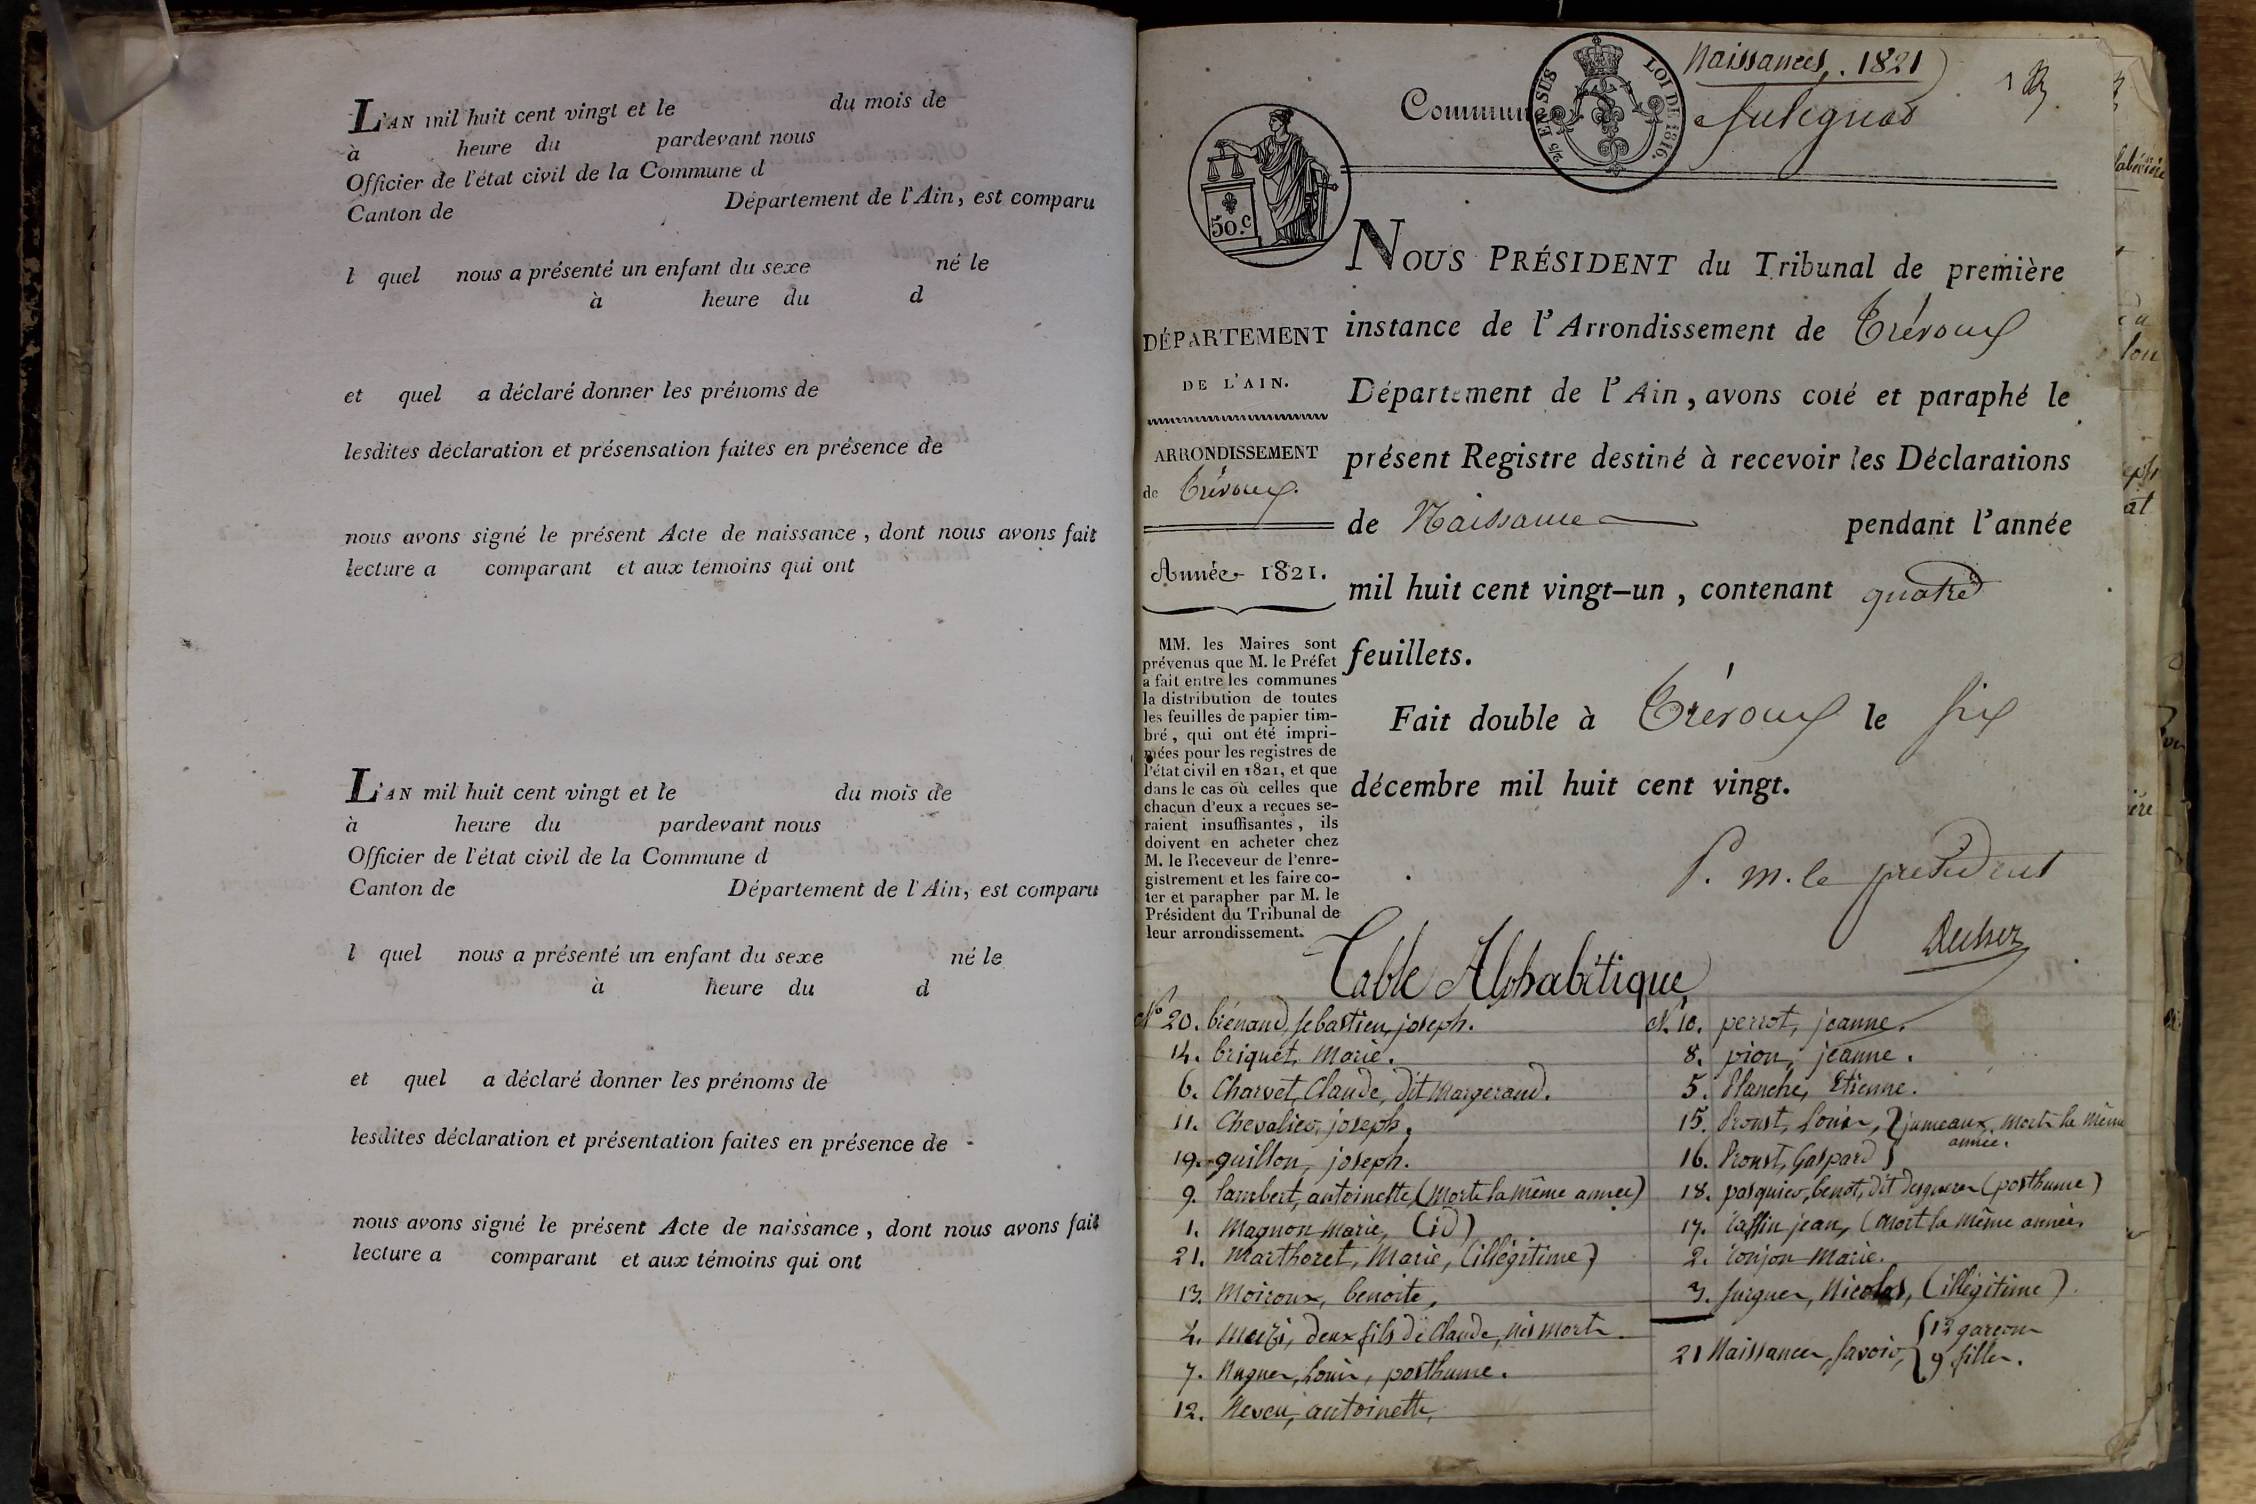 L'AN mil huit cent vingt et le du mois de
à heure du pardevant nous
Officier de l'état civil de la Commune d
Canton de Département de l'Ain, est comparu
l quel nous a présenté un enfant du sexe né le
à heure du d
et quel a déclaré donner les prénoms de
lesdites déclaration et présensation faites en présence de
nous avons signé le présent Acte de naissance, dont nous avons fait
lecture a comparant et aux témoins qui ont
L'AN mil huit cent vingt et le du mois de
à heure du pardevant nous
Officier de l'état civil de la Commune d
Canton de Département de l'Ain, est comparu
l quel nous a présenté un enfant du sexe né le
à heure du d
et quel a déclaré donner les prénoms de
lesdites déclaration et présentation faites en présence de
nous avons signé le présent Acte de naissance, dont nous avons fait
lecture a comparant et aux témoins qui ont
Naissances, 1821
Commune
2/5 EN SUS LOI DE 1816.
50.c
DÉPARTEMENT
DE L'AIN.
ARRONDISSEMENT
de Trévoux.
Année 1821.
MM. les Maires sont
prévenus que M. le Préfet
a fait entre les communes
la distribution de toutes
les feuilles de papier tim-
bré, qui ont été impri-
mées pour les registres de
l'état civil en 1821, et que
dans le cas où celles que
chacun d'eux a reçues se-
raient insuffisantes, ils
doivent en acheter chez
M. le Receveur de l'enre-
gistrement et les faire co-
ter et parapher par M. le
Président du Tribunal de
leur arrondissement.
NOUS PRÉSIDENT du Tribunal de première
instance de l'Arrondissement de Trévoux
Département de l'Ain, avons coté et paraphé le
présent Registre destiné à recevoir les Déclarations
de Naissance pendant l'année
mil huit cent vingt-un, contenant quatre
feuillets.
Fait double à Trévoux le six
décembre mil huit cent vingt.
P. m. le président
Table Alphabétique
No 20. brénaud, sebastien, joseph.
14. briquet, Marie.
6. Charvet, Claude, dit Margerand.
11. Chevalier, joseph.
19. guillon, joseph.
9. lambert, antoinette, (Morte la même année)
1. Magnon marie, (id)
21. Marthoret, Marie, (illégitime)
13. Moiroux, benoite,
4. deux fils de Claude, nés morts.
7. Louis, posthume.
12. Neveu, antoinette,
No 10. perrot, jeanne.
8. pion, jeanne.
5. Planche, Etienne.
15. Proust, Louis, } jumeaux, morts la même
année.
16. Proust, Gaspard }
18. pasquier, benoit, dit (posthume)
17. raffin jean, (mort la même année,
2. ronjon Marie.
3. Nicolas, (illégitime).
21 Naissances, savoir, { 12 garçons
9 filles.